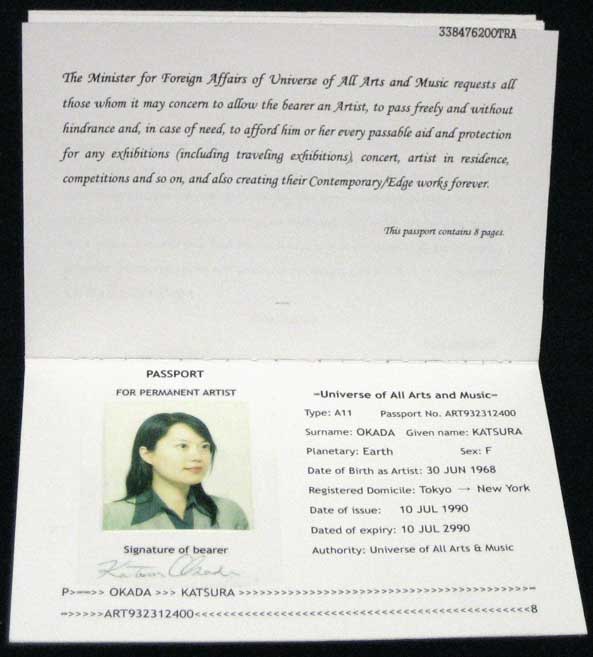 338476200TRA
The Minister for Foreign Affairs of Universe of All Arts and Music requests all
those whom it may concern to allow the bearer an Artist, to pass freely and without
hindrance and, in case of need, to afford him or her every passable aid and protection
for any exhibitions (including traveling exhibitions), concert, artist in residence,
competitions and so on, and also creating their Contemporary/Edge works forever.
This passport contains 8 pages.
PASSPORT
FOR PERMANENT ARTIST
Signature of bearer
Katsura Okada
=Universe of All Arts and Music=
Type: A11 Passport No. ART932312400
Surname: OKADA Given name: KATSURA
Planetary: Earth Sex: F
Date of Birth as Artist: 30 JUN 1968
Registered Domicile: Tokyo → New York
Date of issue: 10 JUL 1990
Dated of expiry: 10 JUL 2990
Authority: Universe of All Arts & Music
P>==>> OKADA >>> KATSURA >>>>>>>>>>>>>>>>>>>>>>>>>>>>>>>>>>>>>>>>>>=
=>>>>>ART932312400<<<<<<<<<<<<<<<<<<<<<<<<<<<<<<<<<<<<<<<<<<<<<<<<8